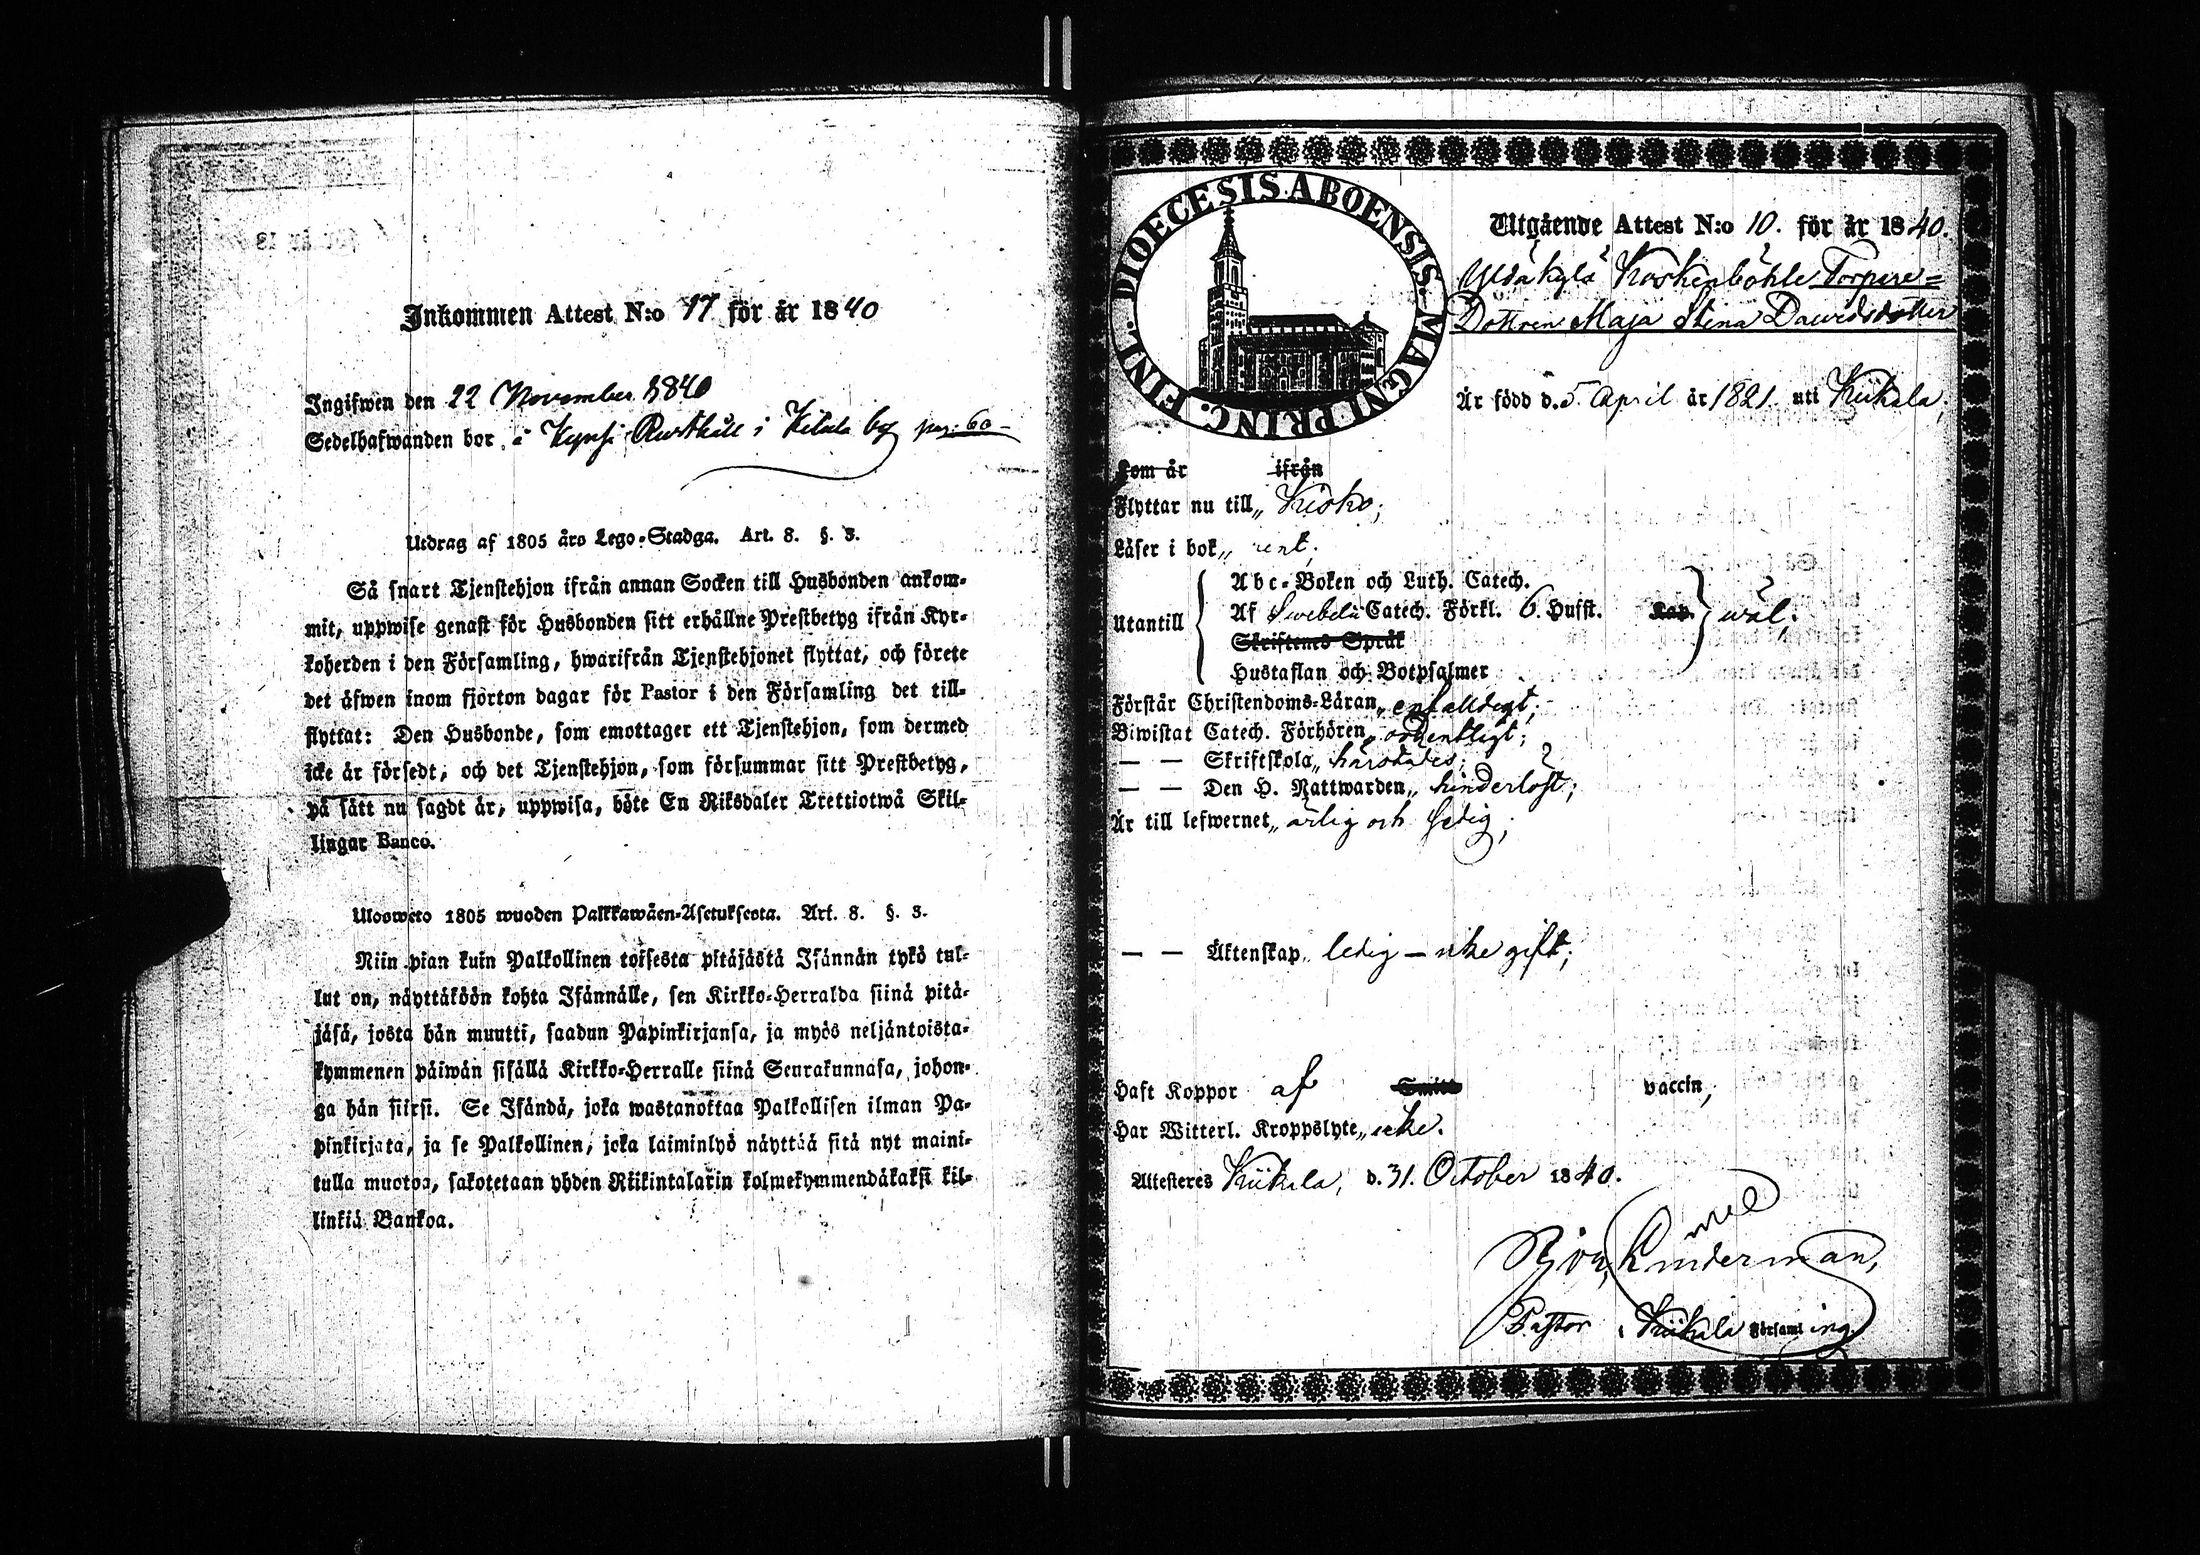 Inkommen Attest N:o 17 för år 1840
Ingifwen den 22 November 1840
Sedelhafwanden bor å Kynsi Rusthåll i Kitula by pag: 60
Utdrag af 1805 års Lego-Stadga. Art. 8. §. 3.
Så snart Tjenstehjon ifrån annan Socken till Husbonden ankom-
mit, uppwise genast för Husbonden sitt erhållne Prestbetyg ifrån Kyr-
koherden i den Församling, hwarifrån Tjenstehjonet flyttat, och förete
det äfwen inom fjorton dagar för Pastor i den Församling det till-
flyttat: Den Husbonde, som emottager ett Tjenstehjon, som dermed
icke är försedt, och det Tjenstehjon, som försummar sitt Prestbetyg,
på sätt nu sagdt är, uppwisa, böte En Riksdaler Trettiotwå Skil-
lingar Banco.
Ulosweto 1805 wuoden Palkkawäen-Asetuksesta. Art. 8. §. 3.
Niin pian kuin Palkollinen toisesta pitäjästä Isännän tykö tul-
lut on, näyttäköön kohta Isännälle, sen Kirkko-Herralda siinä pitä-
jäsä, josta hän muutti, saadun Papinkirjansa, ja myös neljäntoista-
kymmenen päiwän sisällä Kirkko-Herralle siinä Seurakunnasa, johon-
ga hän siirsi. Se Isändä, joka wastanottaa Palkollisen ilman Pa-
pinkirjata, ja se Palkollinen, joka laiminlyö näyttää sitä nyt maini-
tulla muotoa, sakotetaan yhden Riikintalarin kolmekymmendäkaksi kil-
linkiä Bankoa.
DIOECESIS ABOENSIS MAGNI PRINC. FINL.
Utgående Attest N:o 10. för år 1840.
Yldäkylä Koskenböhle Torpare=
Dottren Maja Stina Dawidsdotter
Är född d. 5 April år 1821. uti Kiikala;
Som är ifrån
Flyttar nu till „ Kisko;
Läser i bok „ rent;
Utantill
Abc-Boken och Luth. Catech.
Af Swebelii Catech. Förkl. 6. Hufst. Kap. wäl;
Skriftenes Språk
Hustaflan och Botpsalmer
Förstår Christendoms-Läran „ enfalldigt;
Biwistat Catech. Förhören „ ordentligt;
— — Skriftskola „ härstädes;
— — Den H. Nattwarden „ hinderlöst;
Är till lefwernet „ ärlig och sedig;
— — Äktenskap. ledig — icke gift;
Haft Koppor af vaccin;
Har Witterl. Kroppslyte „ icke.
Attesteres Kiikala, d. 31. October 1840.
Linderman,
Pastor i Kiikala Församling